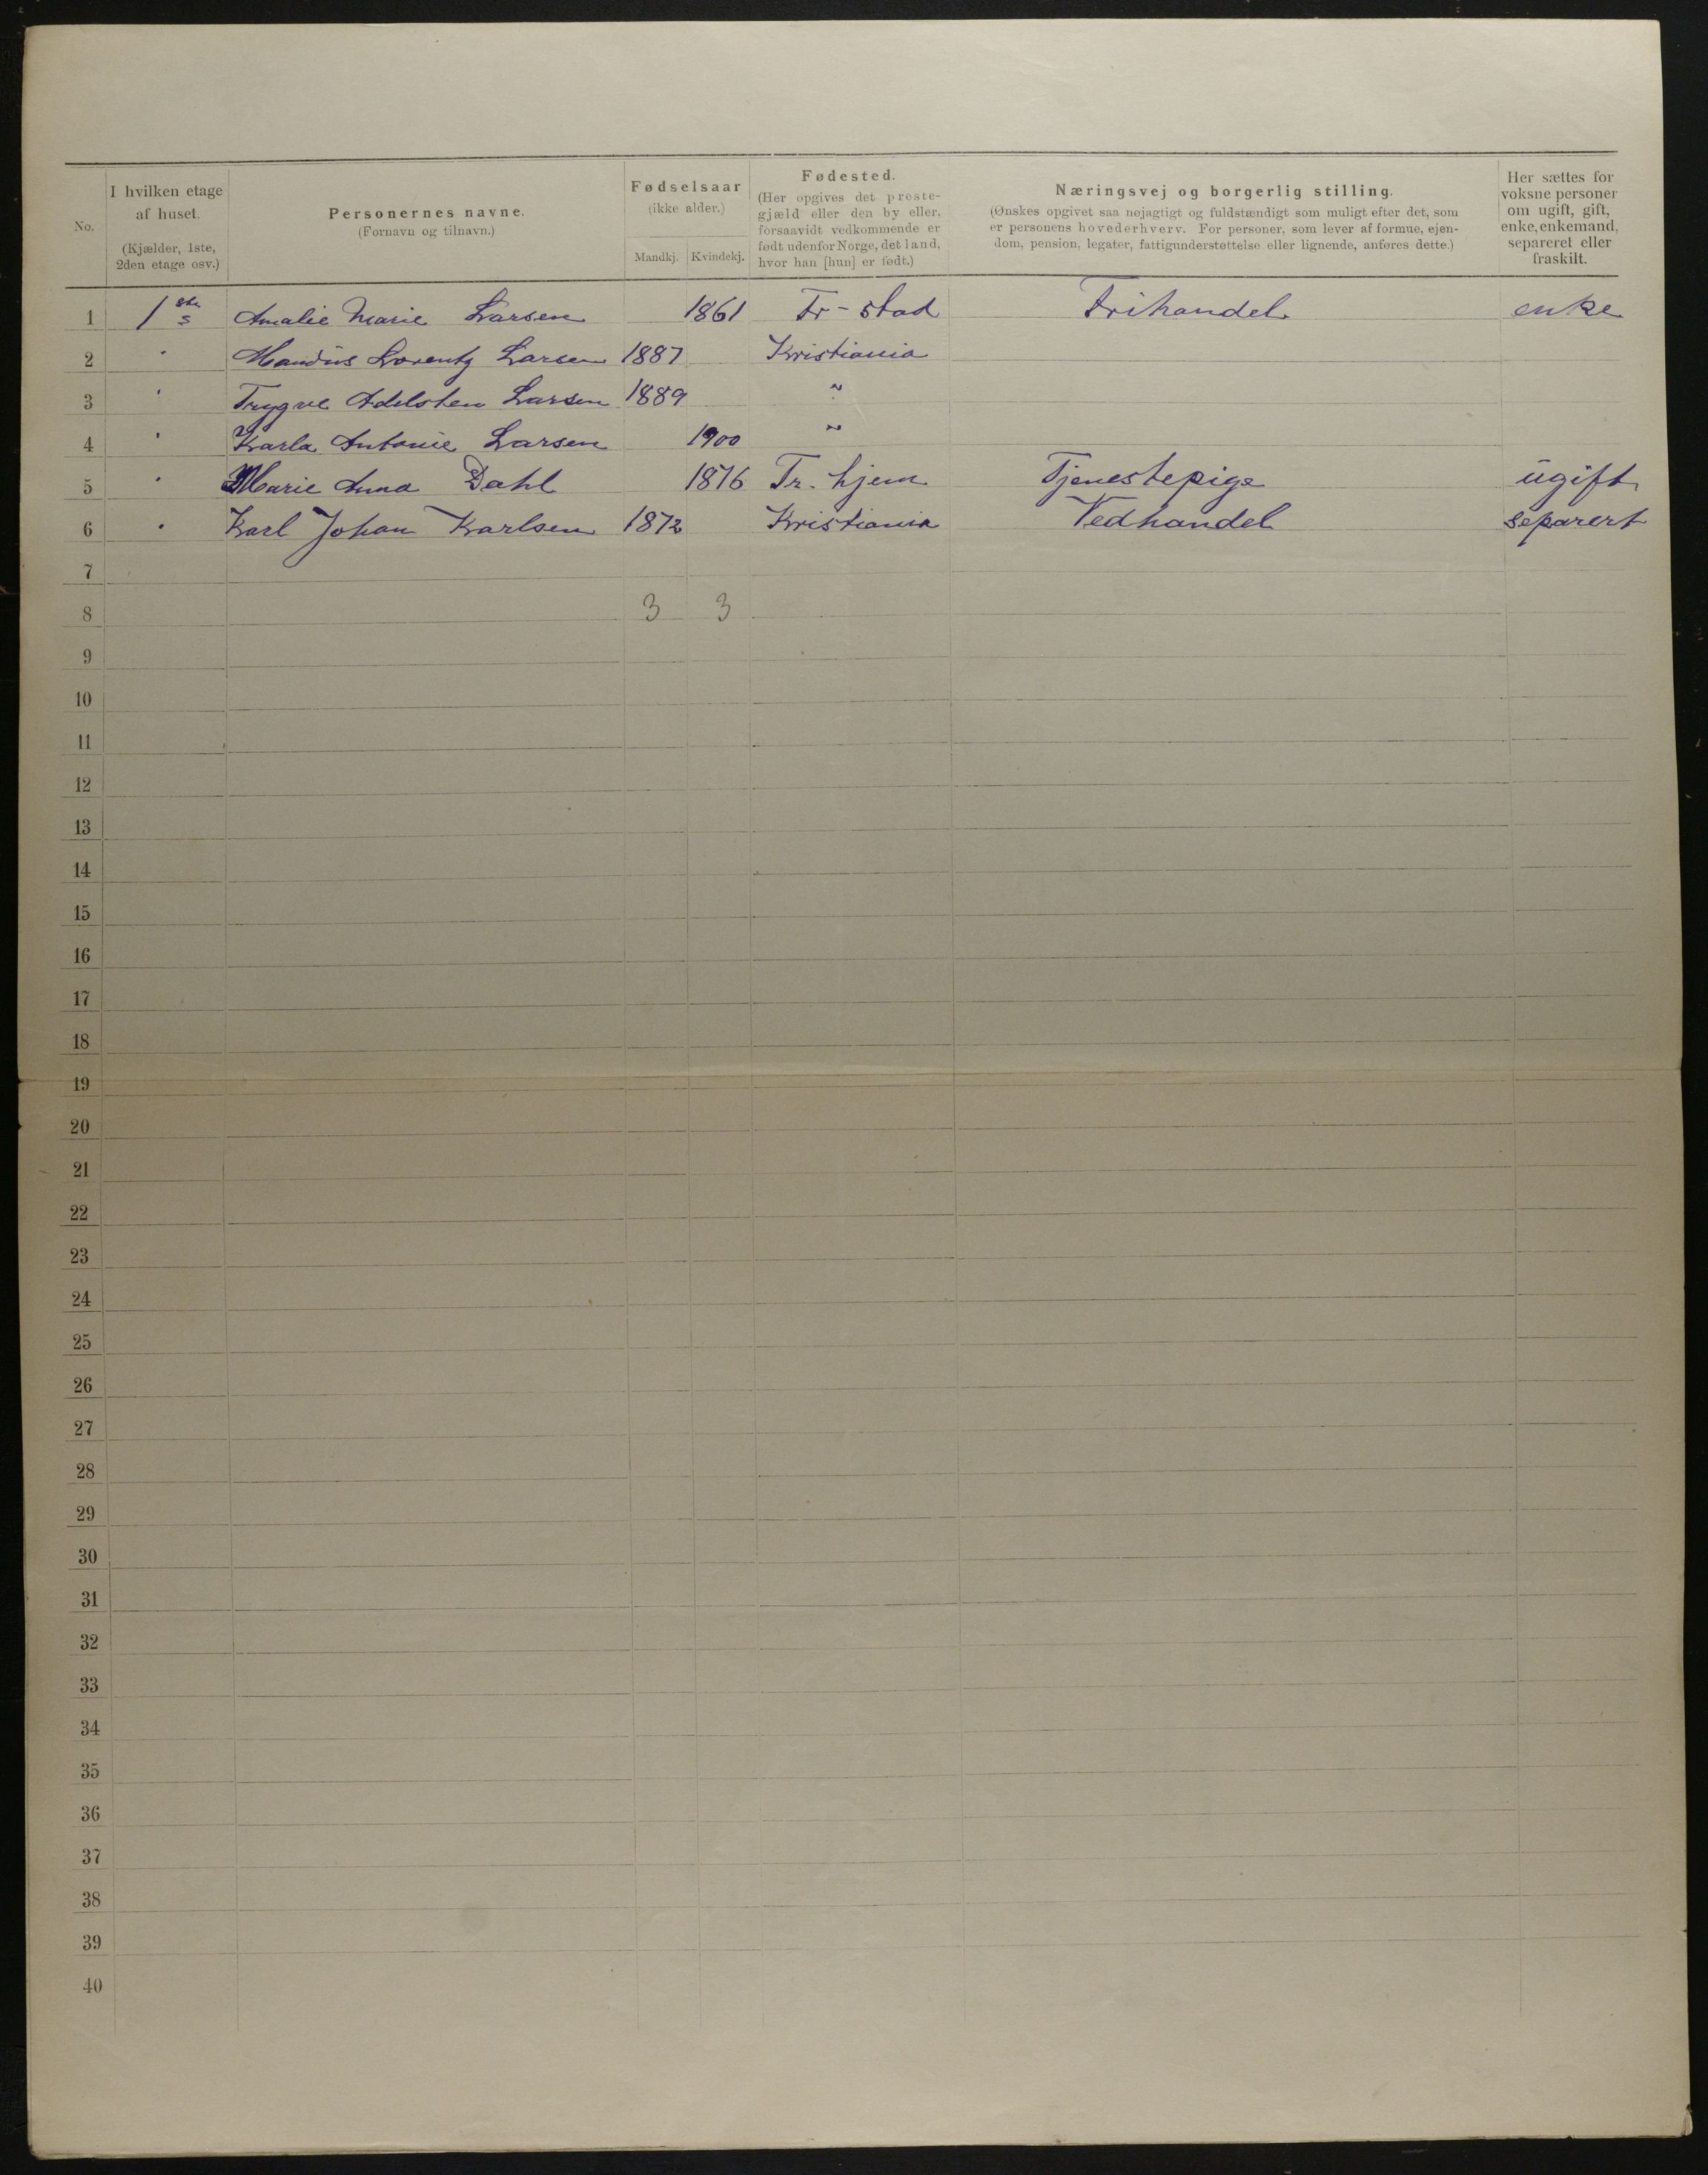 No.
I hvilken etage af huset. (Kjælder, 1ste, 2den etage osv.)
Personernes navne. (Fornavn og tilnavn.)
Fødselsaar (ikke alder.) Mandkj. Kvindekj.
Fødested. (Her opgives det prestegjæld eller den by eller, forsaavidt vedkommende er født udenfor Norge, det land, hvor han [hun] er født.)
Næringsvej og borgerlig stilling. (Ønskes opgivet saa nøjagtigt og fuldstændigt som muligt efter det, som er personens hovederhverv. For personer, som lever af formue, ejendom, pension, legater, fattigunderstøttelse eller lignende, anføres dette.)
Her sættes for voksne personer om ugift, gift, enke, enkemand, separeret eller fraskilt.
1 1ste Amalie Marie Larsen 1861 Fr-stad Frihandel enke
2 " Mandius Lorentz Larsen 1887 Kristiania
3 " Trygve Adelsten Larsen 1889 "
4 " Karla Antonie Larsen 1900 "
5 " Marie Anna Dahl 1876 Tr. hjem Tjenestepige ugift
6 " Karl Johan Karlsen 1872 Kristiania Vedhandel separert
7
8 3 3
9
10
11
12
13
14
15
16
17
18
19
20
21
22
23
24
25
26
27
28
29
30
31
32
33
34
35
36
37
38
39
40